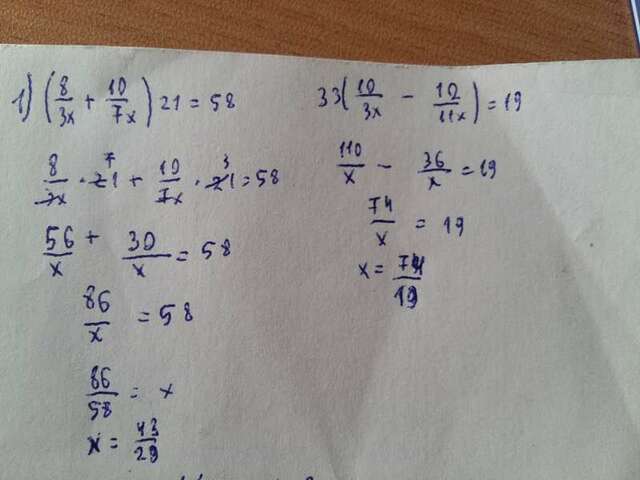 1) (8/3x + 10/7x) 21 = 58
8/3x · 21 7 + 10/7x · 21 3 = 58
56/x + 30/x = 58
86/x = 58
86/58 = x
x = 43/29
33(10/3x - 12/11x) = 19
110/x - 36/x = 19
74/x = 19
x = 74/19